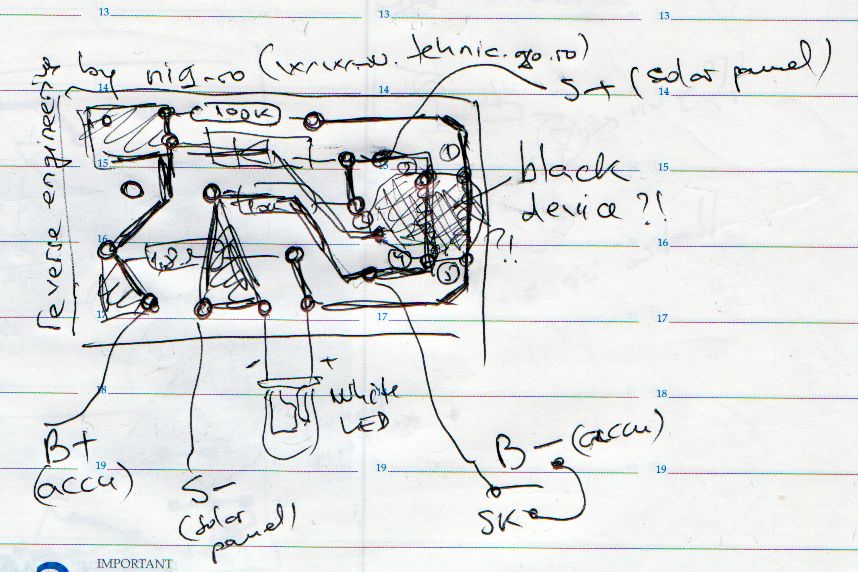 13 13 13
by nig.ro (www.tehnic.go.ro)
reverse engineering
14 14 14
S+ (solar panel)
100K
15 15 15
1
black
device ?!
?!
16 16 16
4
3
17 17 17
- +
white
LED
18 18 18
B+
(accu)
B- (accu)
19 19 19
S-
(solar
panel)
SK
IMPORTANT